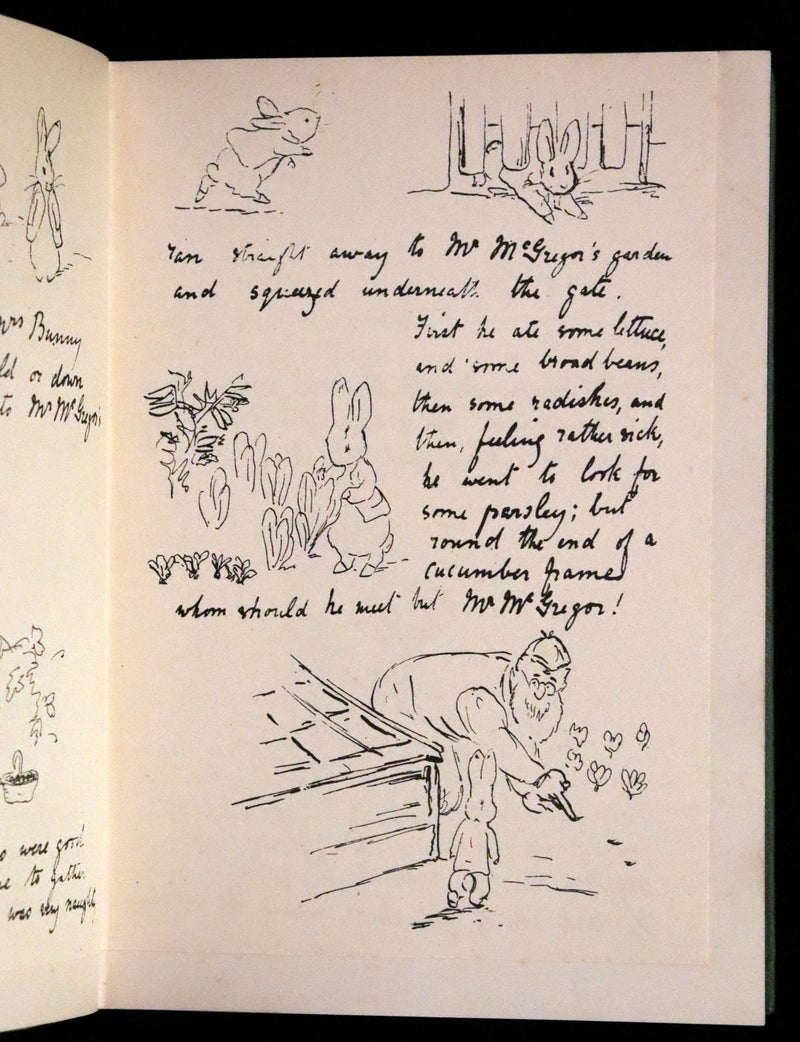 Mrs Bunny
ld or down
to Mr McGregor's
o were good
me to gather
was very naughty
ran straight away to Mr McGregor's garden
and squeezed underneath the gate.
First he ate some lettuce,
and some broad beans,
then some radishes, and
then, feeling rather sick,
he went to look for
some parsley; but
round the end of a
cucumber frame
whom should he meet but Mr McGregor!